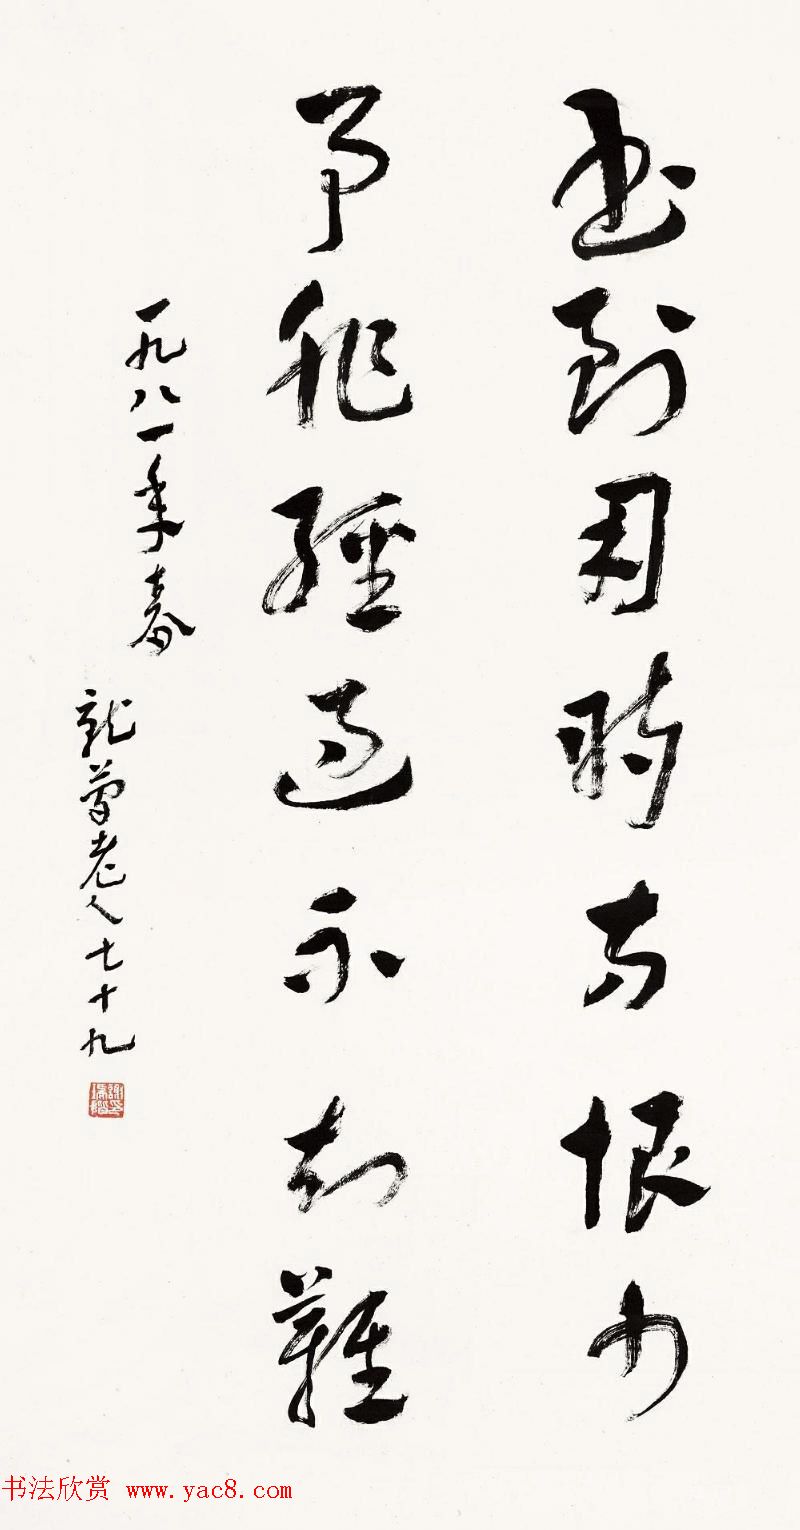 書到用時方恨少
事非經過不知難
一九八一年春
就简老人七十九
书法欣赏 www.yac8.com